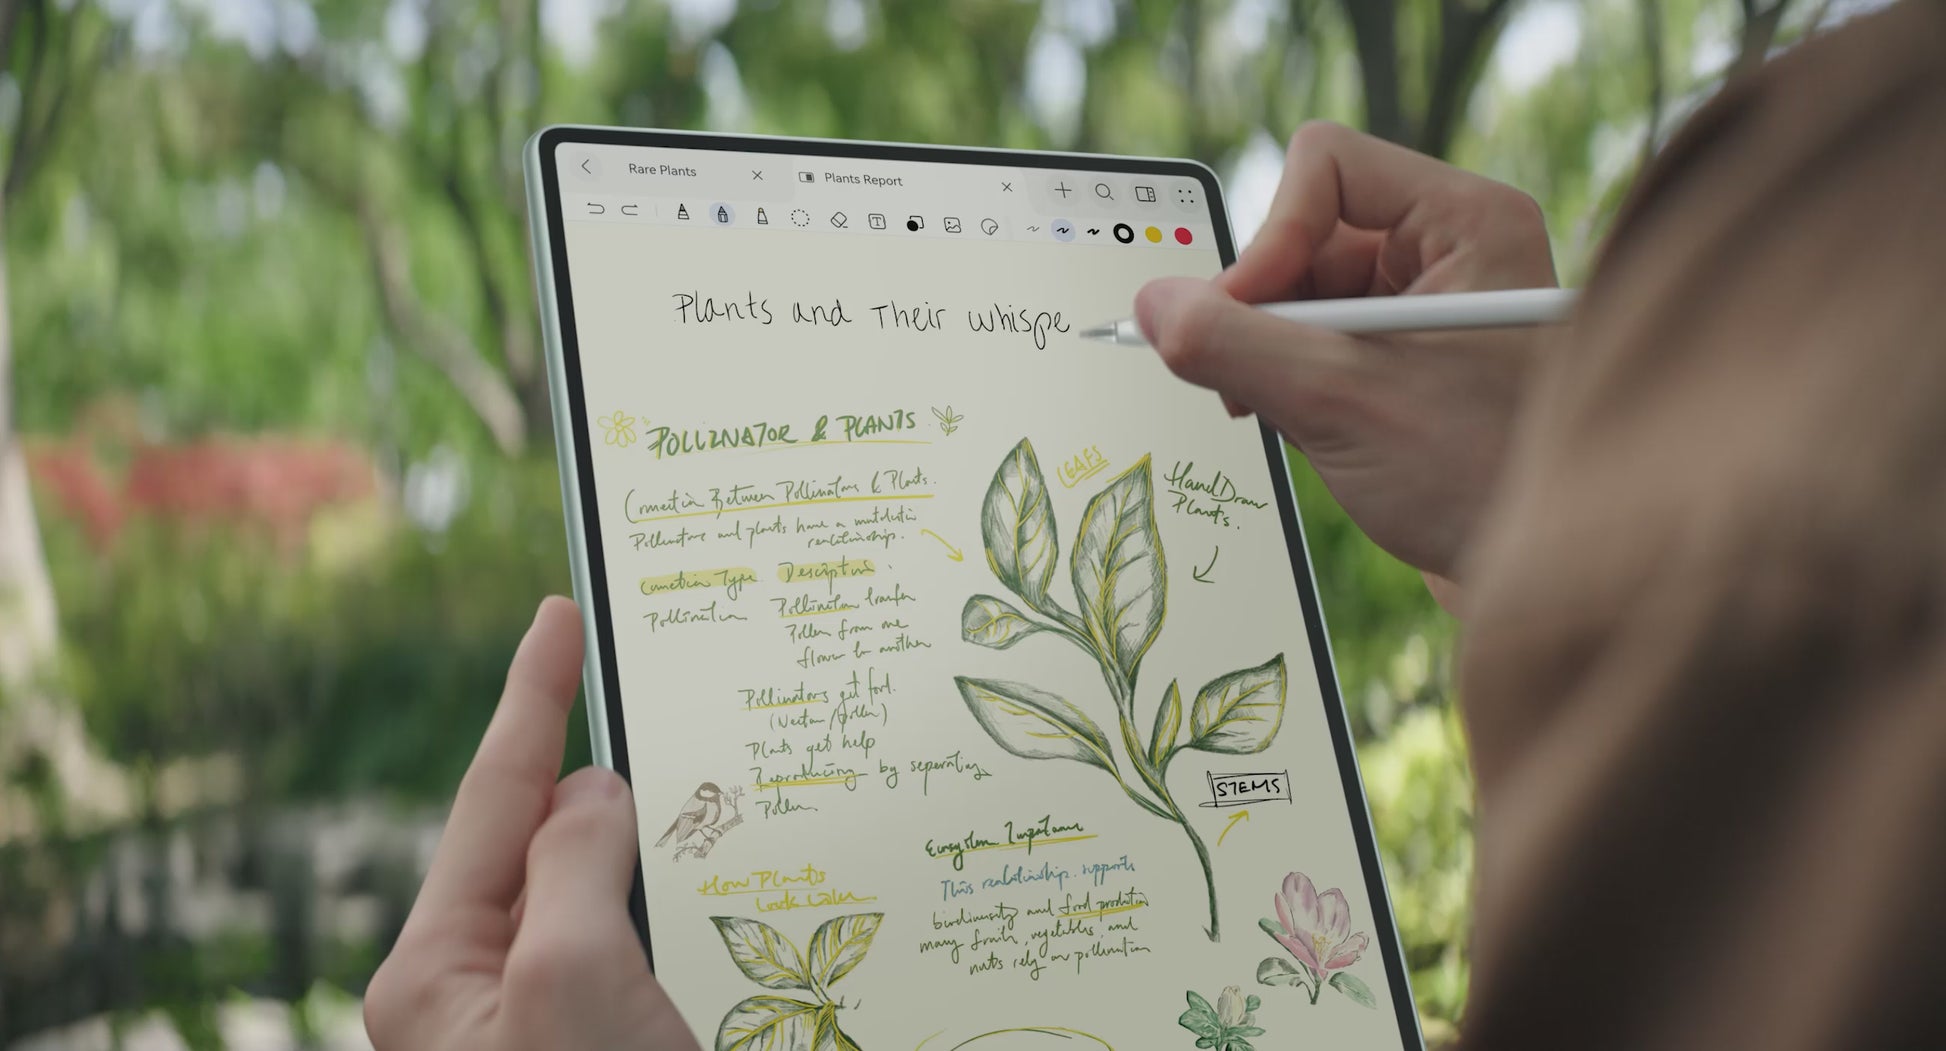 Rare Plants
Plants Report
Plants and Their Whispe
POLLINATOR & PLANTS
Connection Between Pollinators & Plants.
Pollinators and plants have a
relationship.
LEAFS
HandDraw
Plants.
Connection Type Description
Pollination Pollination transfer
Pollen from one
flower to another
Pollinators get food.
(Nectar/pollen)
Plants get help
Reproducing by seperating
Pollen
STEMS
How Plants
Look Like
Ecosystem Importance
This realationship supports
biodiversity and food production
many fruits, vegetables, and
nuts rely on pollination